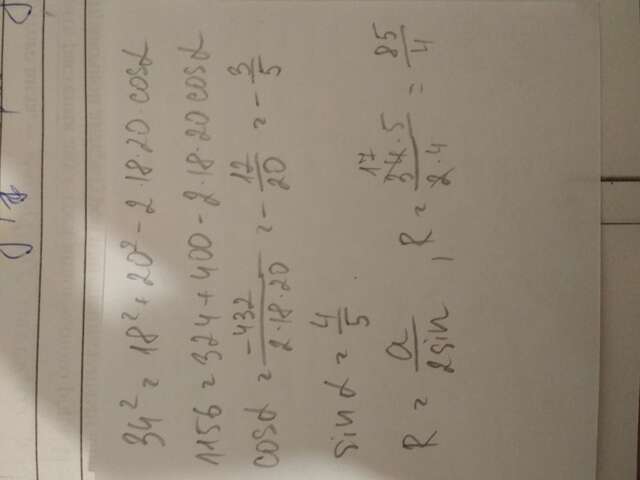 34² = 18² + 20² - 2·18·20·cosα
1156 = 324 + 400 - 2·18·20 cosα
cosα = -432/2·18·20 = - 12/20 = - 3/5
sin α = 4/5
R = a/2sin , R = 17 34·5/2·4 = 85/4